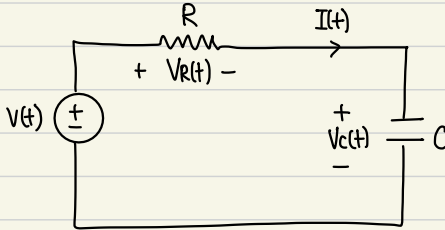 R
I(t)
+ VR(t) −
V(t)
+
−
+
Vc(t)
−
C